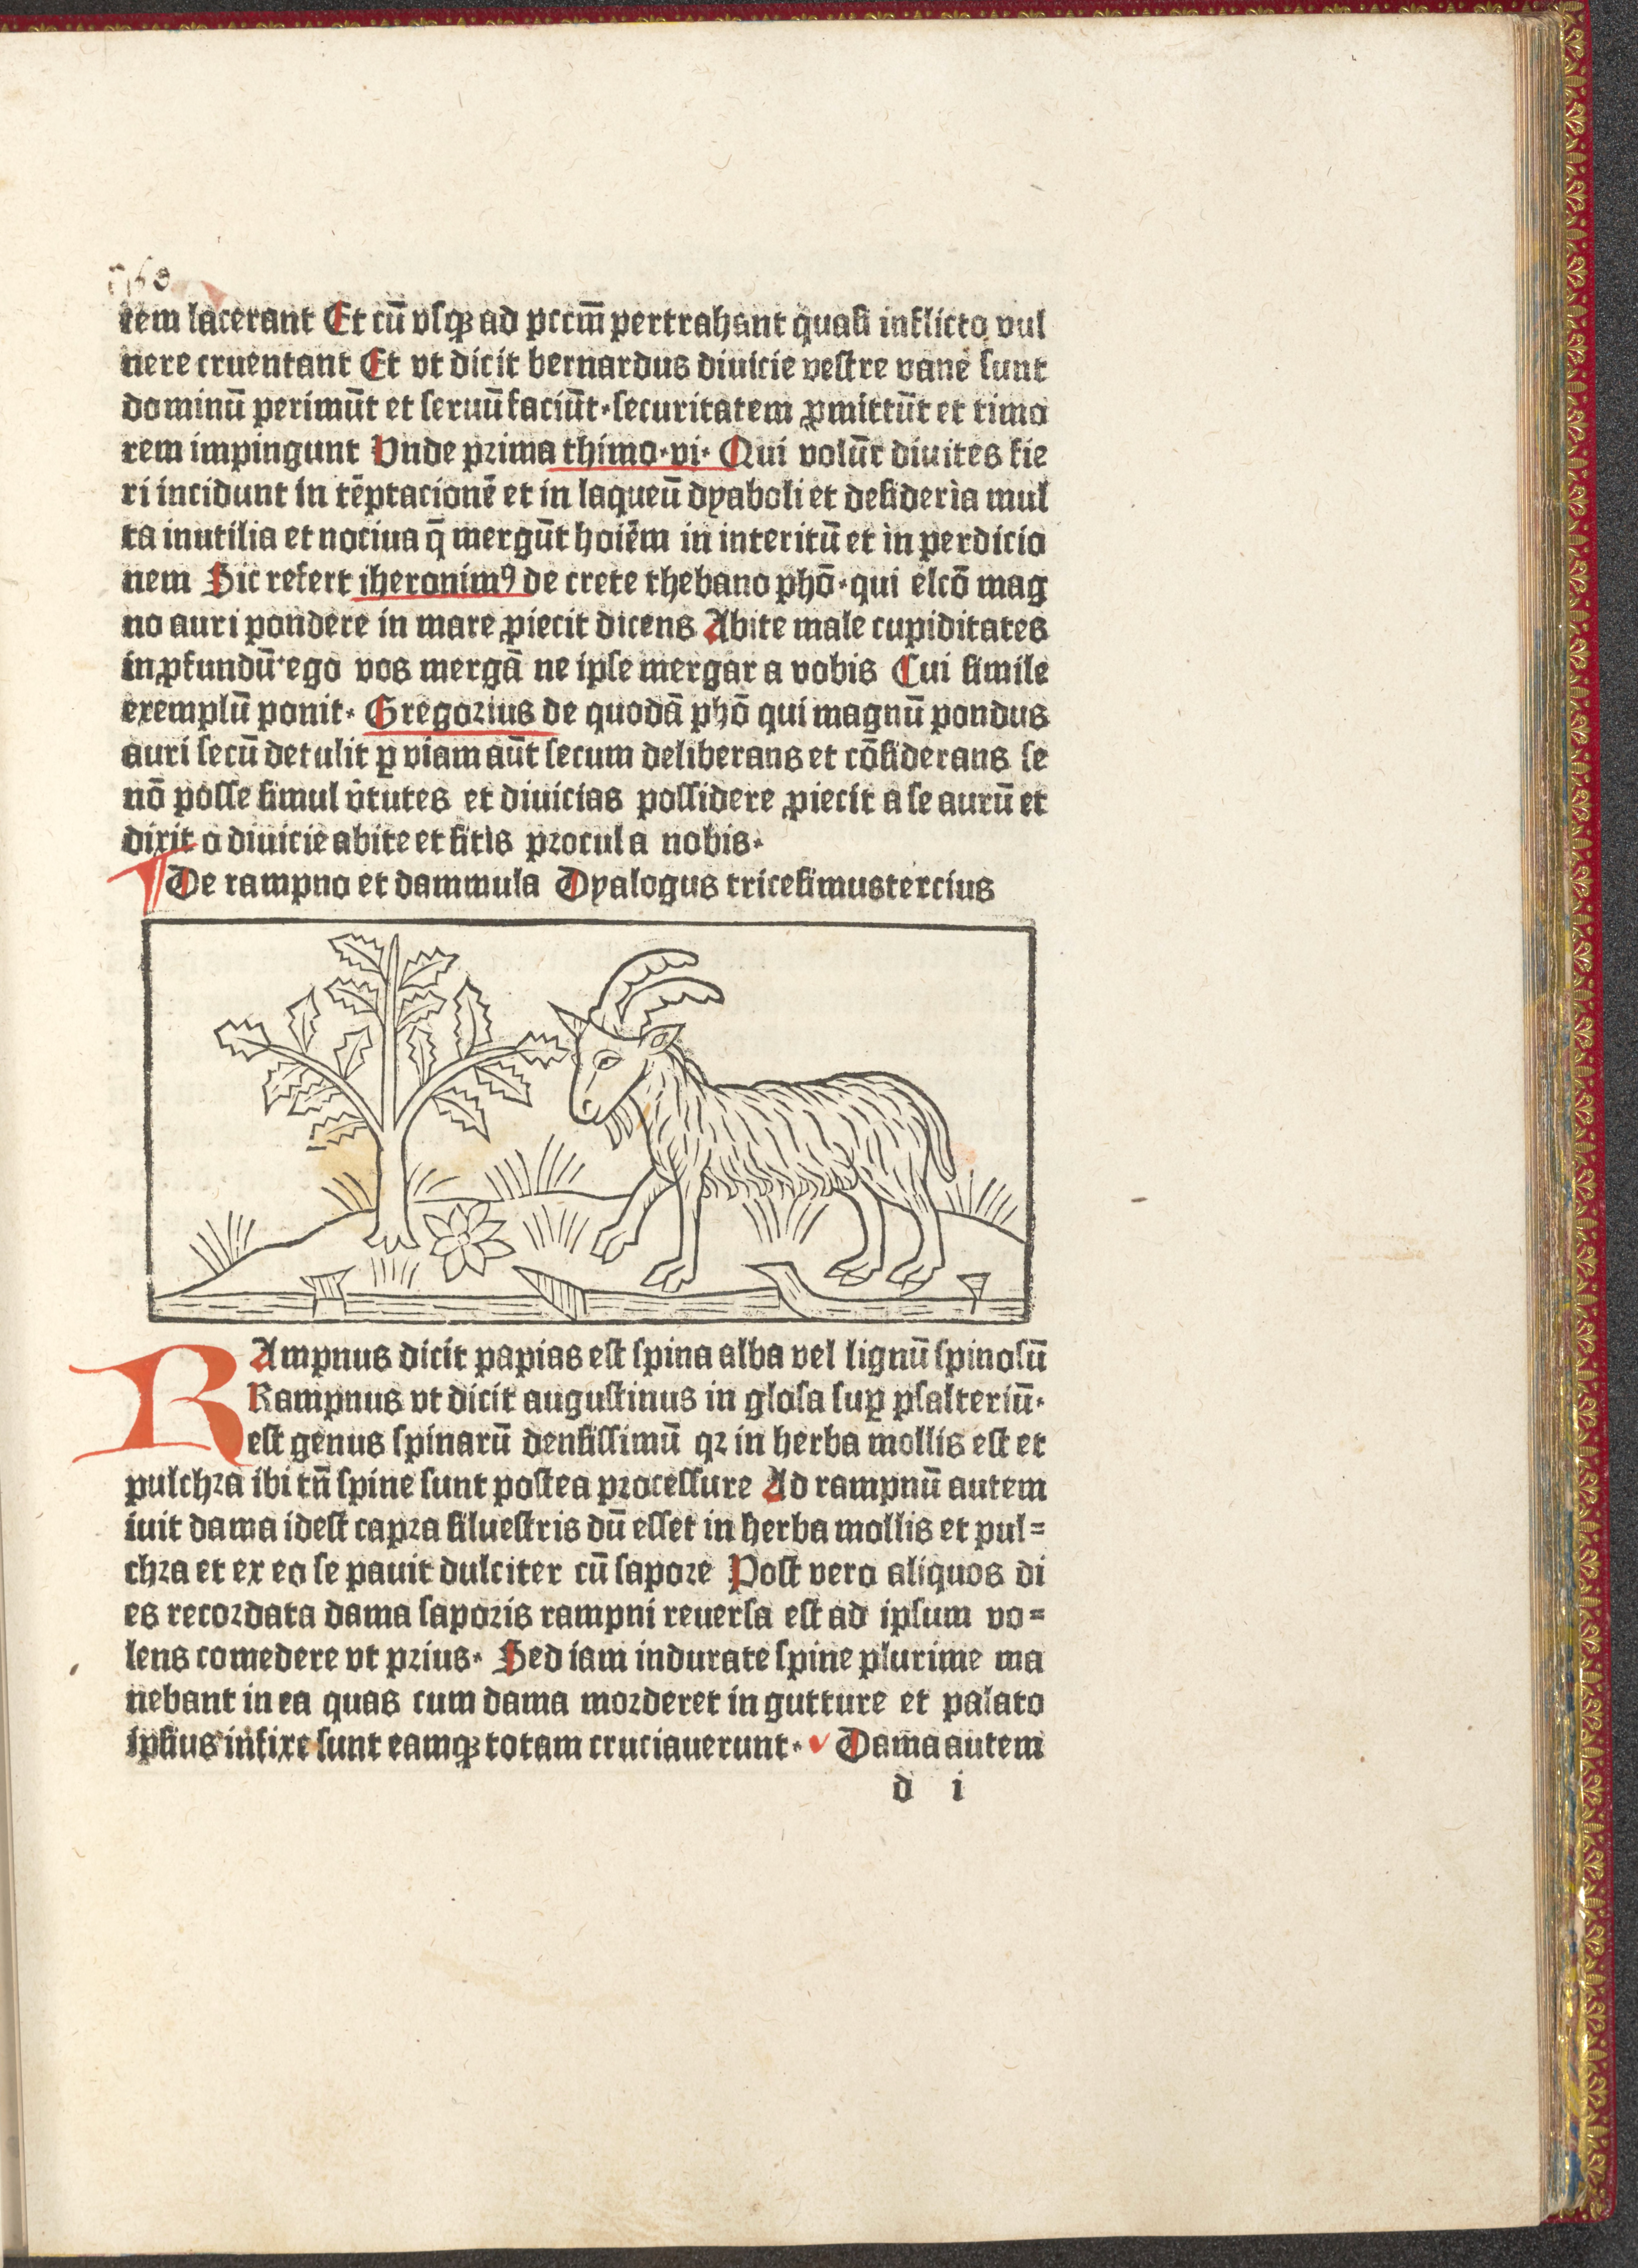 tem lacerant Et cū vſqꝫ ad pccm̄ pertrahant quaſi inflicto vul
nere cruentant Et vt dicit bernardus diuicie veſtre vane ſunt
dominū perimūt et ſeruū faciūt·ſecuritatem ꝓmittūt et timo
rem impingunt Vnde prima thimo·vi· Qui volūt diuites fie
ri incidunt in tēptacionē et in laqueū dyaboli et deſideria mul
ta inutilia et nociua q̄ mergūt hoiēm in interitū et in perdicio
nem Sic refert iheronimꝰ de crete thebano phō·qui elcō mag
no auri pondere in mare ꝓiecit dicens Abite male cupiditates
in ꝓfundū·ego vos mergā ne ipſe mergar a vobis Cui ſimile
exemplū ponit· Gregorius de quodā phō qui magnū pondus
auri ſecū detulit ꝑ viam aūt ſecum deliberans et cōſiderans ſe
nō poſſe ſimul v̄tutes et diuicias poſſidere ꝓiecit a ſe aurū et
dixit o diuicie abite et ſitis procul a nobis·
De rampno et dammula Dyalogus triceſimustercius
RAmpnus dicit papias eſt ſpina alba vel lignū ſpinoſū
Rampnus vt dicit auguſtinus in gloſa ſuꝑ pſalteriū·
eſt genus ſpinarū denſiſſimū qꝛ in herba mollis eſt et
pulchra ibi tn̄ ſpine ſunt poſtea proceſſure Ad rampnū autem
iuit dama ideſt capra ſilueſtris dū eſſet in herba mollis et pul=
chra et ex eo ſe pauit dulciter cū ſapore Poſt vero aliquos di
es recordata dama ſaporis rampni reuerſa eſt ad ipſum vo=
lens comedere vt prius· Sed iam indurate ſpine plurime ma
nebant in ea quas cum dama morderet in gutture et palato
ipſius infixe ſunt eamqꝫ totam cruciauerunt· Dama autem
d i